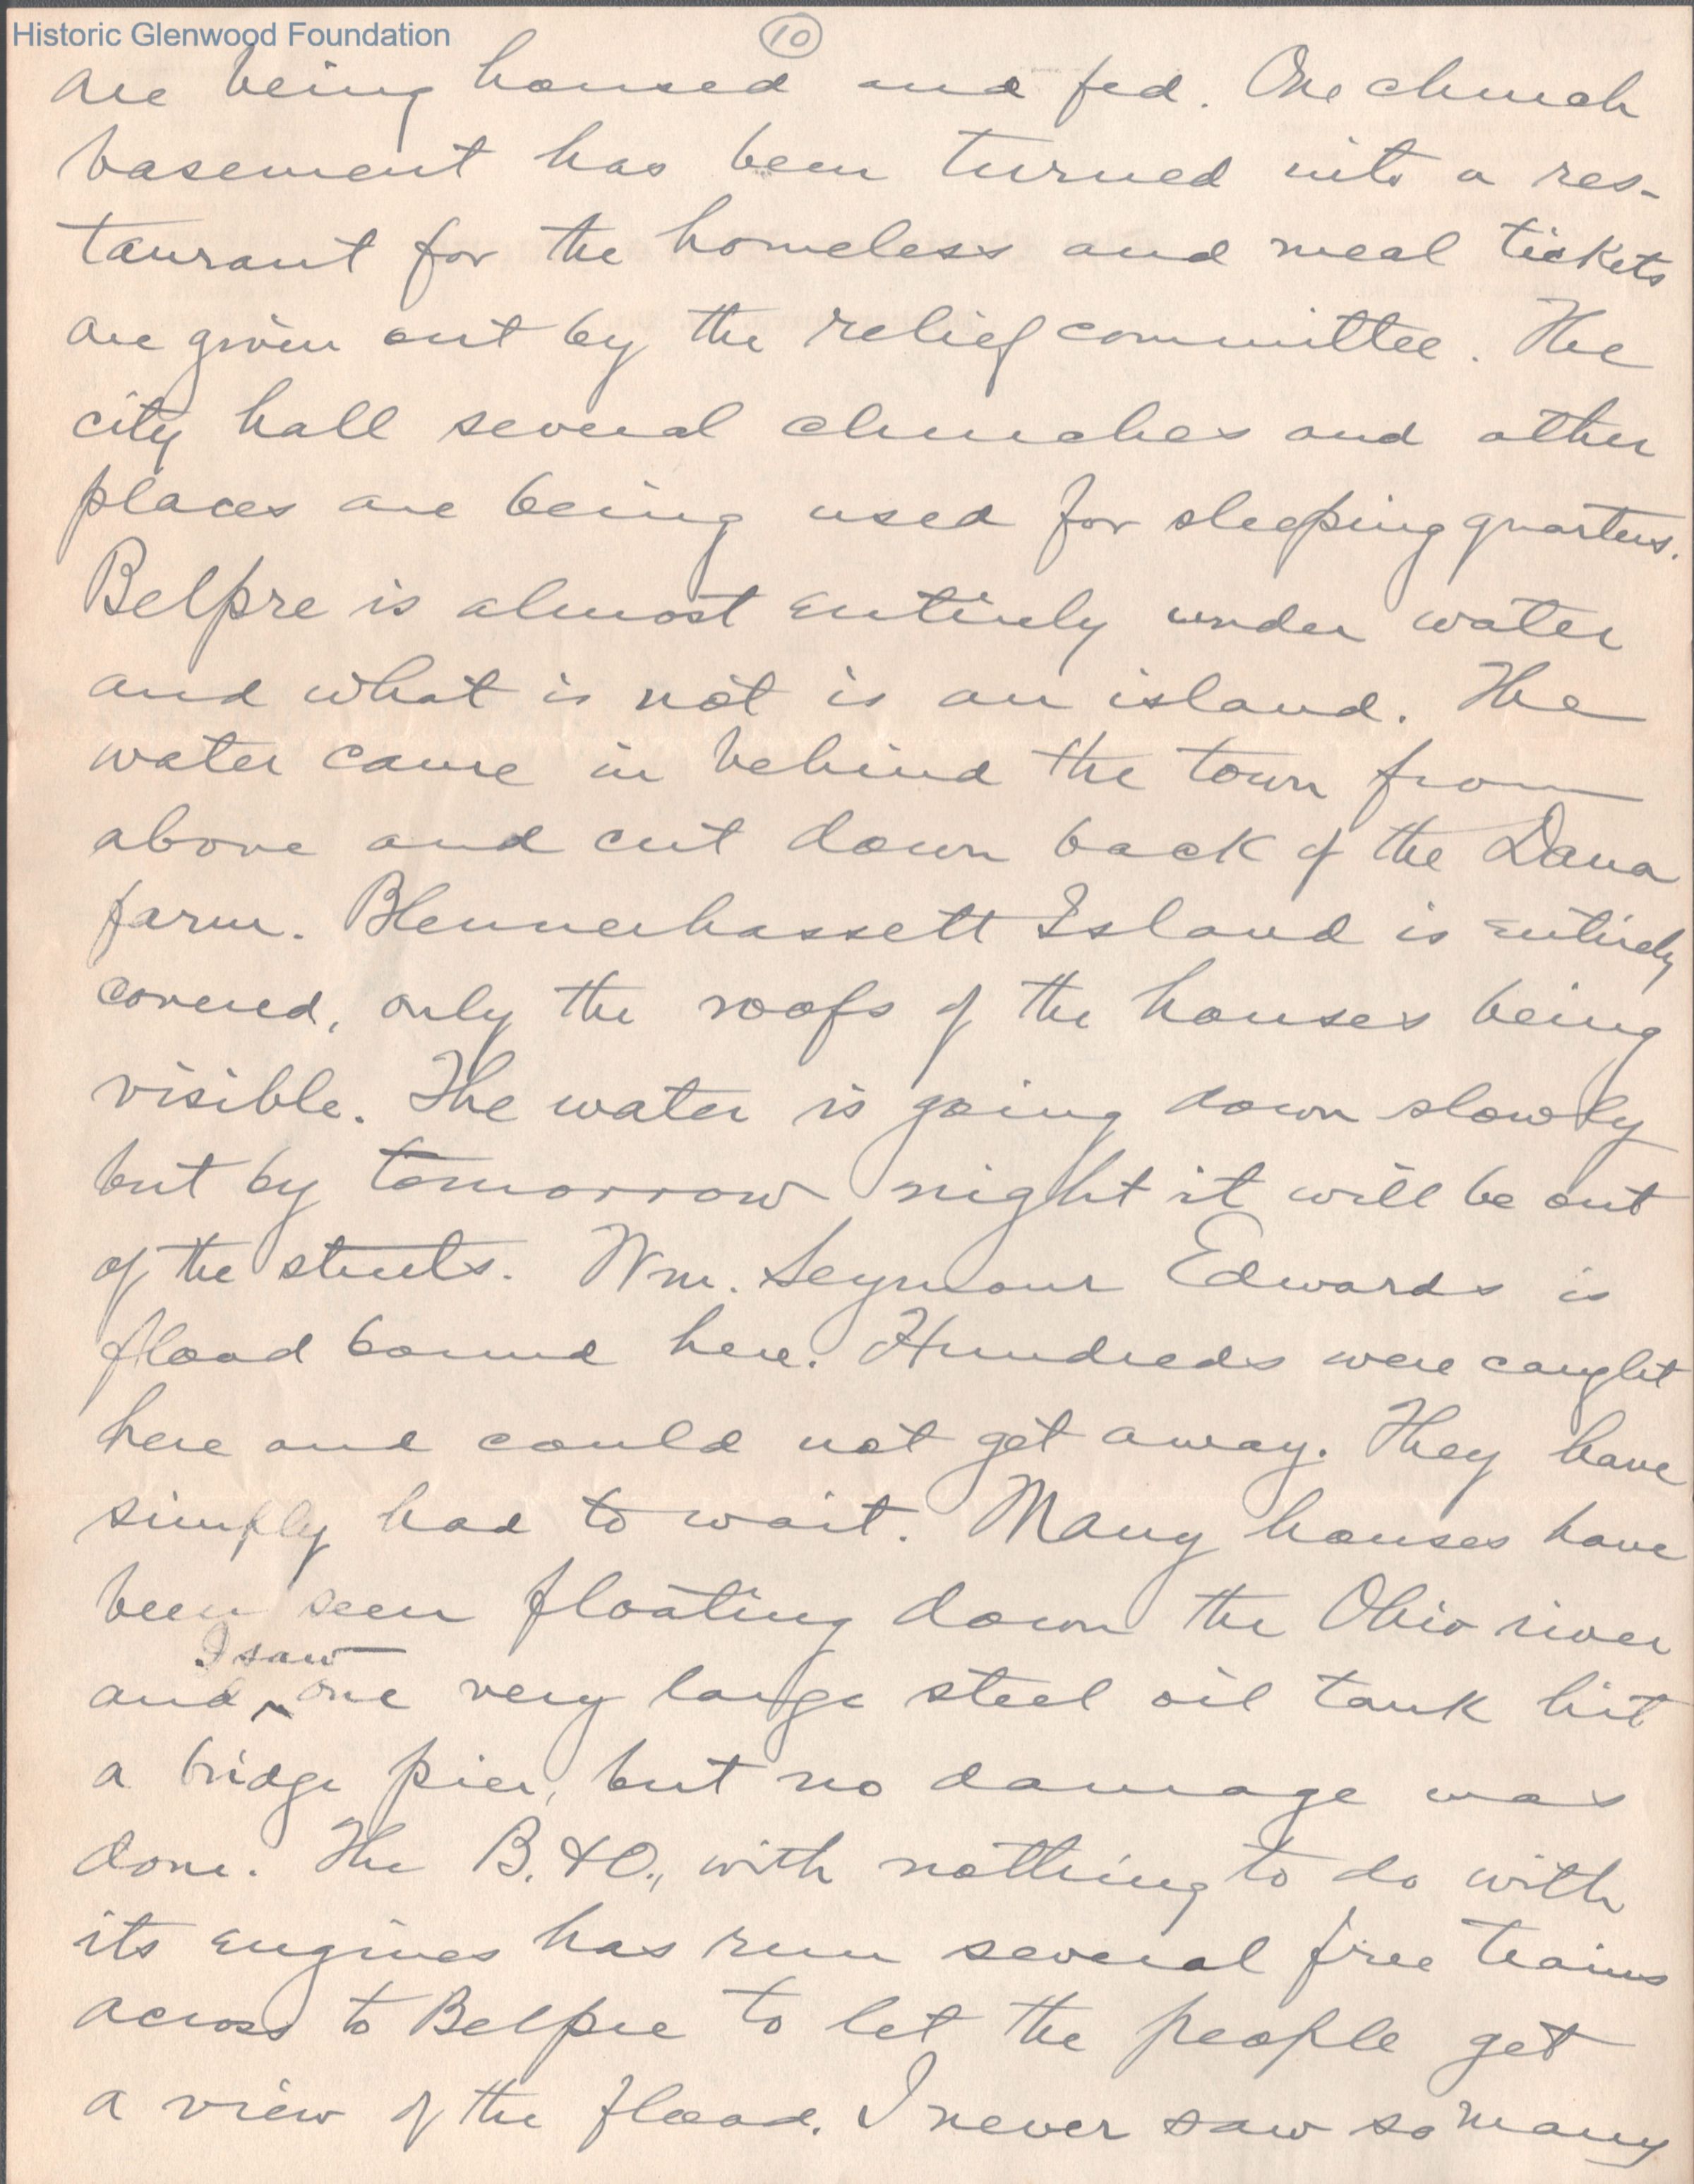 Historic Glenwood Foundation
10
are being housed and fed. One church
basement has been turned into a res-
taurant for the homeless and meal tickets
are given out by the relief committee. The
city hall several churches and other
places are being used for sleeping quarters.
Belpre is almost entirely under water
and what is not is an island. The
water came in behind the town from
above and cut down back of the Dana
farm. Blennerhassett Island is entirely
covered, only the roofs of the houses being
visible. The water is going down slowly
but by tomorrow night it will be out
of the streets. Wm. Seymour Edwards is
flood bound here. Hundreds were caught
here and could not get away. They have
simply had to wait. Many houses have
been seen floating down the Ohio river
I saw
and ^ one very large steel oil tank hit
a bridge pier, but no damage was
done. The B. & O., with nothing to do with
its engines has run several free trains
across to Belpre to let the people get
a view of the flood. I never saw so many